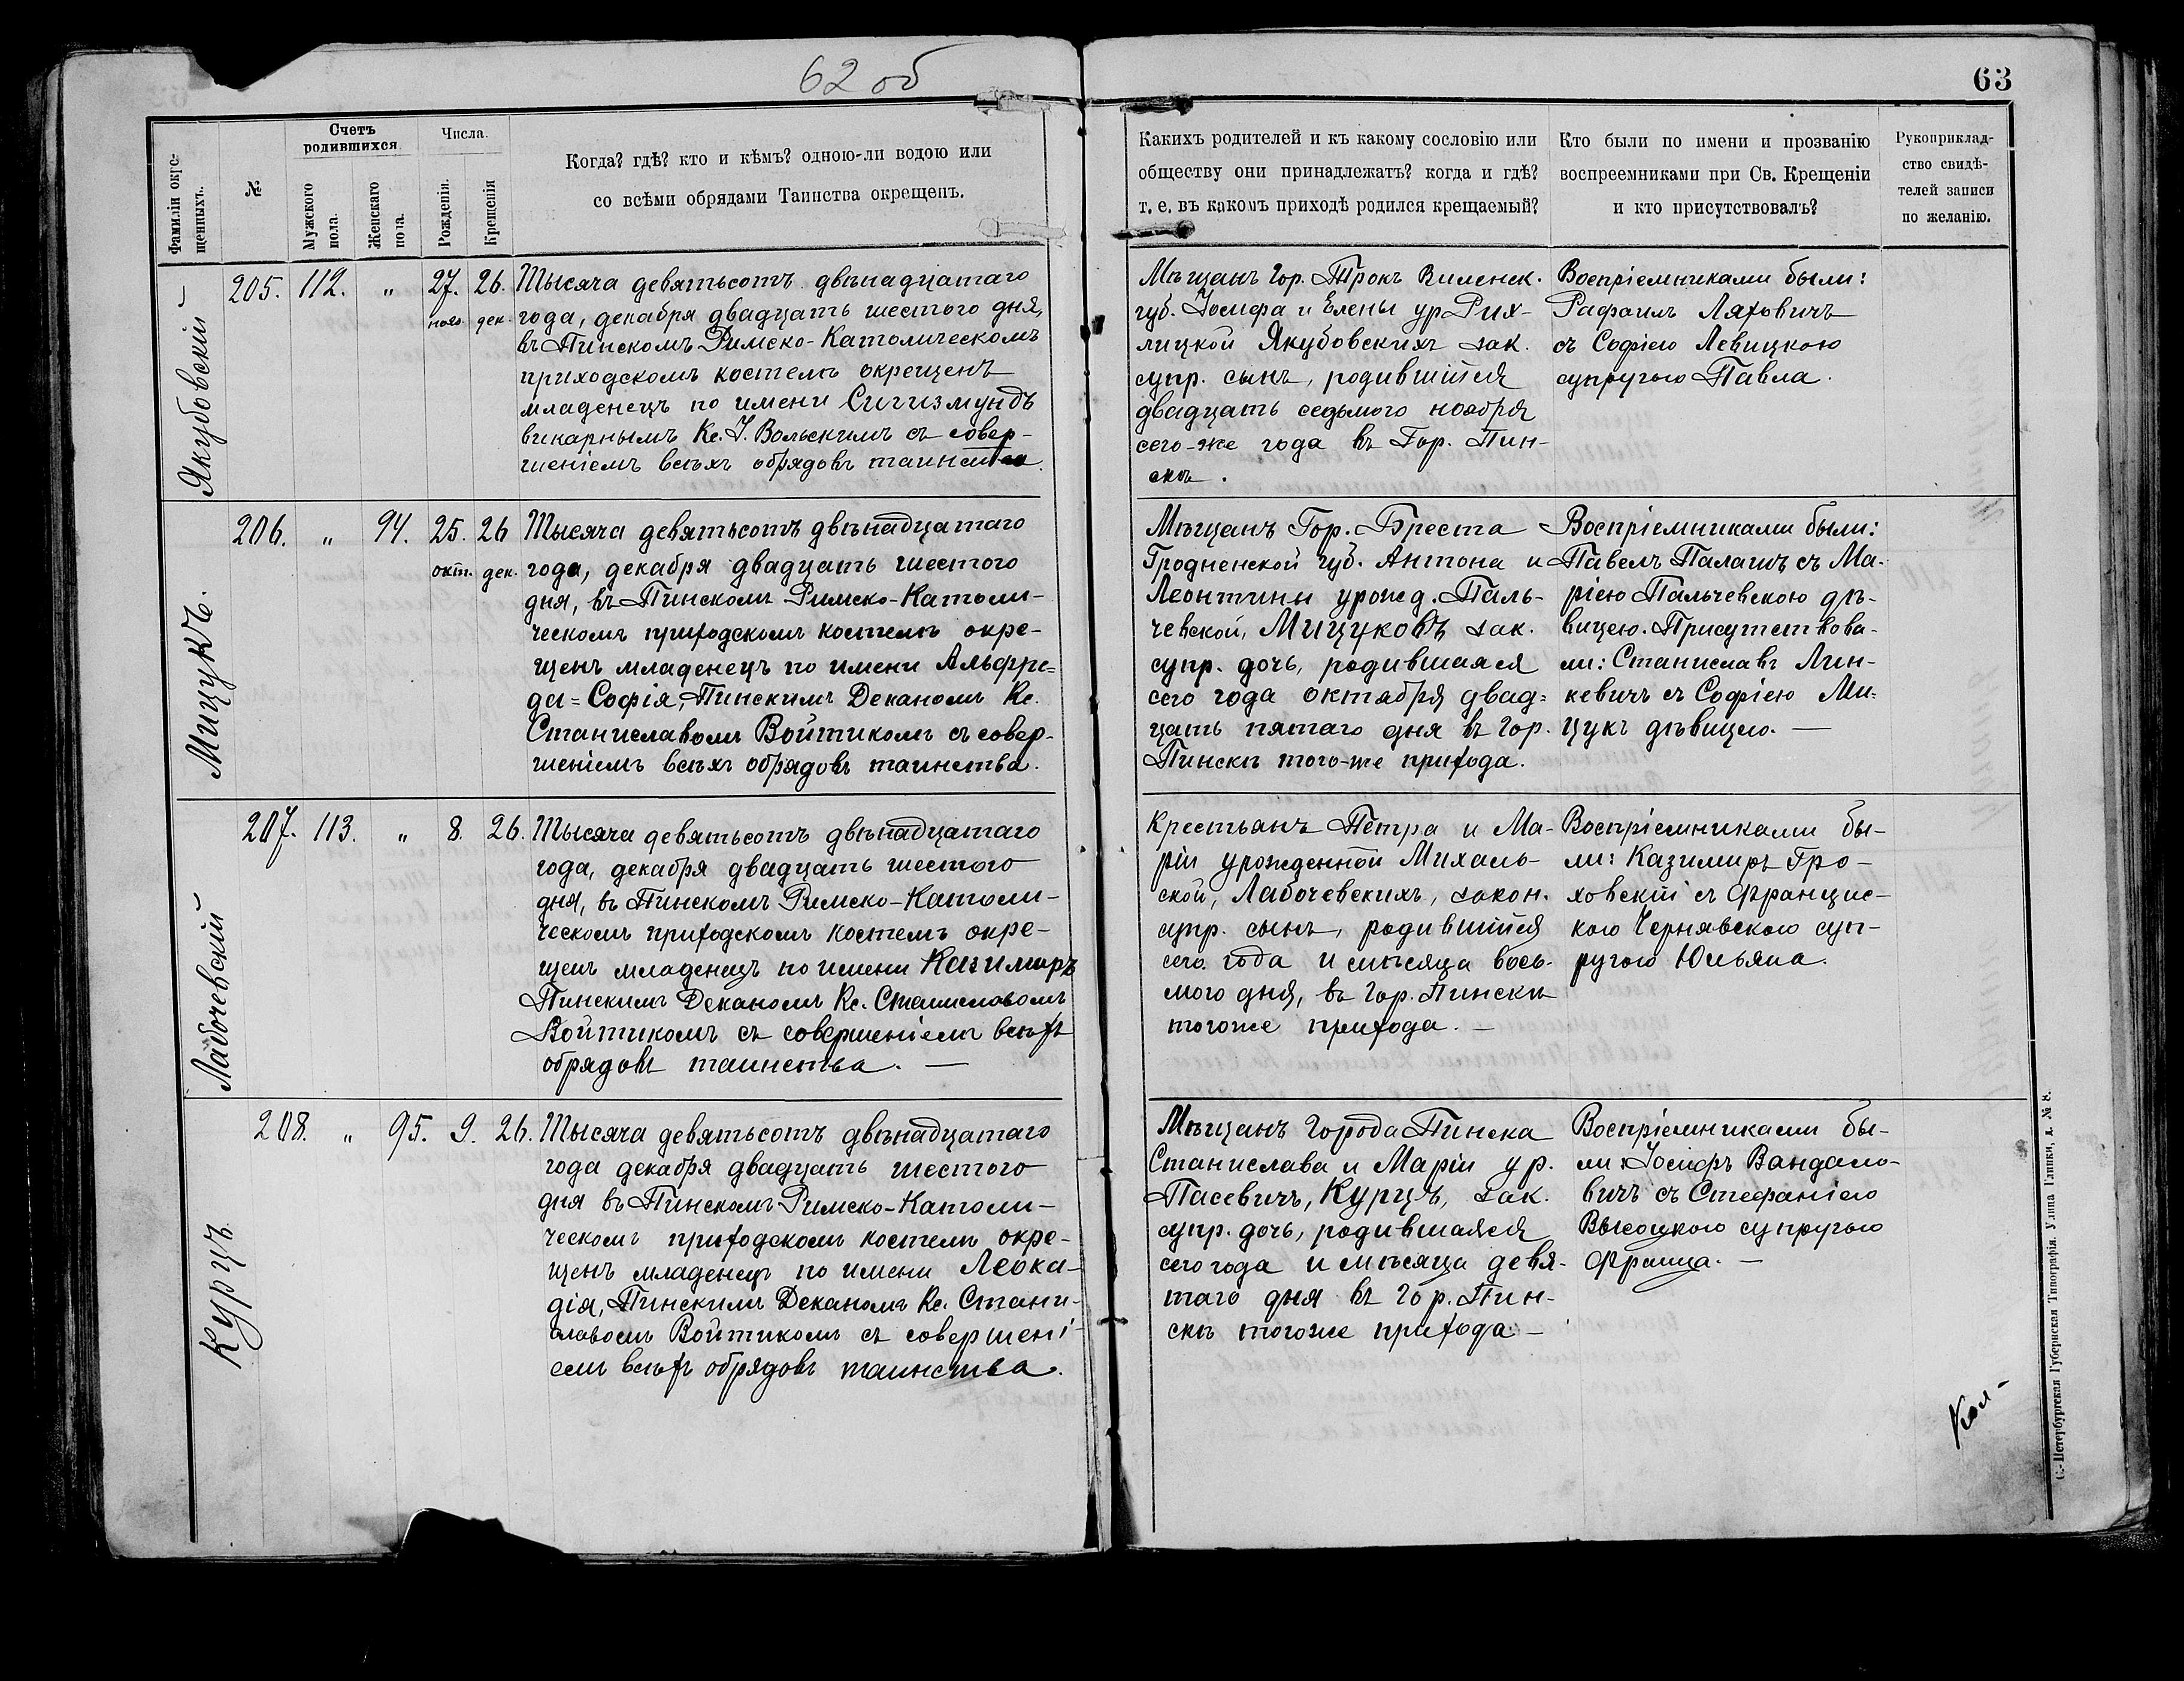 62 об
63
Фамиліи окре-
щенныхъ.
№
Счетъ
родившихся
Мужского
пола.
Женскаго
пола.
Числа.
Рожденія.
Крещенія
Когда? гдѣ? кто и кѣмъ? одною-ли водою или
со всѣми обрядами Таинства окрещенъ.
Какихъ родителей и къ какому сословію или
обществу они принадлежатъ? когда и гдѣ?
т. е. въ какомъ приходѣ родился крещаемый?
Кто были по имени и прозванію
воспреемниками при Св. Крещеніи
и кто присутствовалъ?
Рукоприклад-
ство свидѣ-
телей записи
по желанію.
Якубовскій
205. 112. „ 27. 26.
нояб. дек.
Тысяча девятьсотъ двѣнадцатаго
года, декабря двадцать шестого дня,
въ Пинскомъ Римско-Католическомъ
приходскомъ костелѣ окрещенъ
младенецъ по имени Сигизмундъ
викарнымъ Кс. І. Вольскимъ съ совер-
шеніемъ всѣхъ обрядовъ таинства.
Мѣщанъ гор. Трокъ Виленск.
губ. Іосифа и Елены ур Рих-
лицкой Якубовскихъ зак.
супр. сынъ, родившійся
двадцать седьмого ноября
сего-же года въ Гор. Пин-
скѣ.
Воспріемниками были:
Рафаилъ Ляховичъ
съ Софіею Левицкою
супругою Павла.
Мицукъ.
206. „ 94. 25. 26
окт. дек.
Тысяча девятьсотъ двѣнадцатаго
года, декабря двадцать шестого
дня, въ Пинскомъ Римско-Католи-
ческомъ приходскомъ костелѣ окре-
щенъ младенецъ по имени Альфре-
да=Софія, Пинскимъ Деканомъ Кс.
Станиславомъ Войтикомъ съ совер-
шеніемъ всѣхъ обрядовъ таинства.
Мѣщанъ Гор. Бреста
Гродненской губ. Антона и
Леонтины урожд. Паль-
чевской, Мицуковъ зак.
супр. дочь, родившаяся
сего года октября двад=
цать пятаго дня въ гор.
Пинскѣ того-же прихода.
Воспріемниками были:
Павелъ Палашъ съ Ма-
ріею Пальчевскою дѣ-
вицею. Присутствова-
ли: Станиславъ Лин-
кевичъ съ Софіею Ми=
цукъ дѣвицею. —
Лабочевскій
207. 113. „ 8. 26.
Тысяча девятьсотъ двѣнадцатаго
года, декабря двадцать шестого
дня, въ Пинскомъ Римско-Католи-
ческомъ приходскомъ костелѣ окре-
щенъ младенецъ по имени Казимиръ
Пинскимъ Деканомъ Кс. Станиславомъ
Войтикомъ съ совершеніемъ всѣхъ
обрядовъ таинства. —
Крестьянъ Петра и Ма-
ріи урожденной Михаль-
ской, Лабочевскихъ, закон.
супр. сынъ, родившійся
сего года и мѣсяца вось-
мого дня, въ гор. Пинскѣ
тогоже прихода. —
Воспріемниками бы-
ли: Казимиръ Гро-
ховскій съ Францис-
кою Чернявскою суп-
ругою Юльяна.
Курцъ
208. „ 95. 9. 26.
Тысяча девятьсотъ двѣнадцатаго
года декабря двадцать шестого
дня въ Пинскомъ Римско-Католи-
ческомъ приходскомъ костелѣ окре-
щенъ младенецъ по имени Леока-
дія, Пинскимъ Деканомъ Кс. Стани-
славомъ Войтикомъ съ совершені-
емъ всѣхъ обрядовъ таинства.
Мѣщанъ города Пинска
Станислава и Маріи ур.
Пасевичъ, Курцъ, зак.
супр. дочь, родившаяся
сего года и мѣсяца девя-
таго дня въ гор. Пин-
скѣ тогоже прихода. —
Воспріемниками бы-
ли: Іосифъ Вандало-
вичъ съ Стефаніею
Высоцкою супругою
Франца. —
С.-Петербургская Губернская Типографія. Улица Глинки, д. № 8.